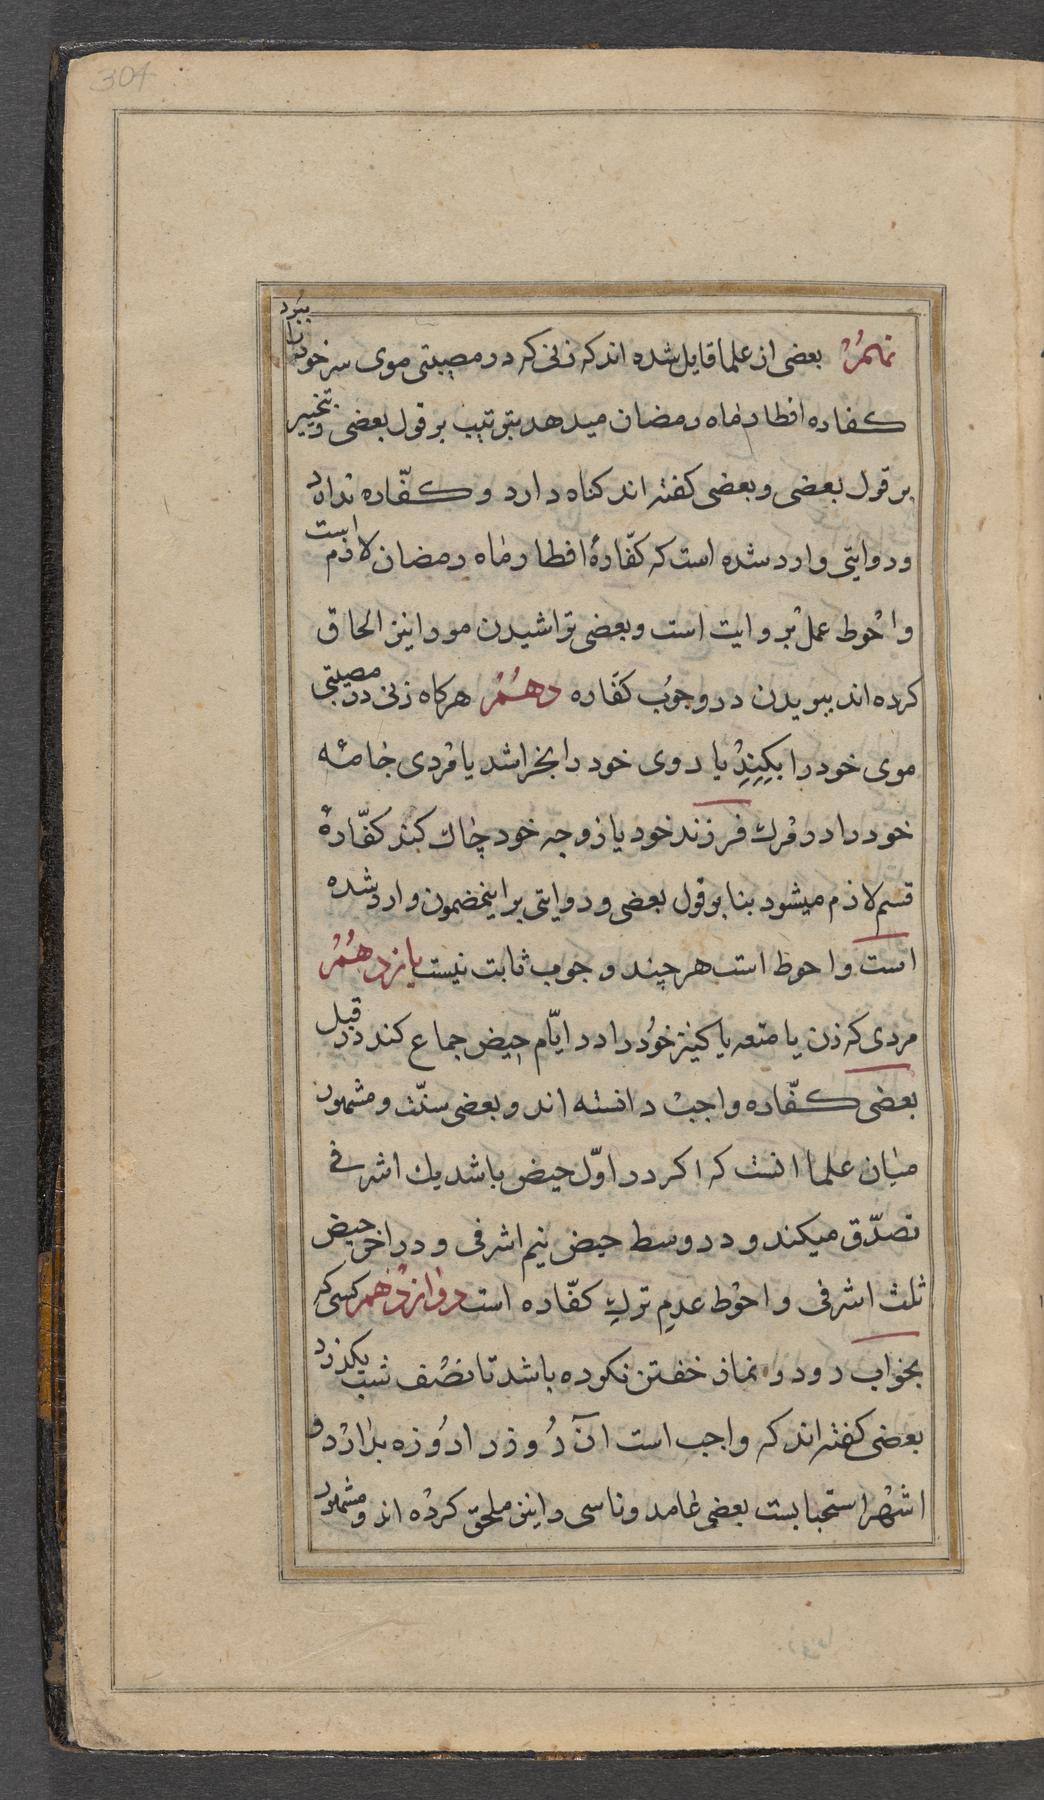 304
نهم بعضی از علما قایل شده اند که زنی که در مصیبتی موی سر خود را ببرد
کفاره افطار ماه رمضان میدهد بترتیب بر قول بعضی و بتخییر
بر قول بعضی و بعضی کفته اند کناه دارد و کفّاره ندارد
و روایتی وارد شده است که کفّارهٔ افطار ماه رمضان لازم است
و احوط عمل بروایت است و بعضی تراشیدن مو را نیز الحاق
کرده اند ببریدن در وجوب کفّاره دهم هرکاه زنی در مصیبتی
موی خود را بکند یا روی خود را بخراشد یا مردی جامهٔ
خود را در مرك فرزند خود یا زوجه خود چاك کند کفّارهٔ
قسم لازم میشود بنا بر قول بعضی و روایتی براینمضمون وارد شده
است و احوط است هر چند وجوب ثابت نیست یازدهم
مردی که زن یا متعه یا کنیز خود را در ایّام حیض جماع کند در قبل
بعضی کفّاره واجب دانسته اند و بعضی سنّت و مشهور
میان علما انست که اکر در اوّل حیض باشد یك اشرفی
تصدّق میکند و در وسط حیض نیم اشرفی و در اخر حیض
ثلث اشرفی و احوط عدم ترك کفّاره است دوازدهم کسی که
بخواب رود و نماز خفتن نکرده باشد تا نصف شب بکذرد
بعضی کفته اند که واجب است آن روز را روزه بدارد و
اشهر استحبابست بعضی عامد و ناسی را نیز ملحق کرده اند و مشهور